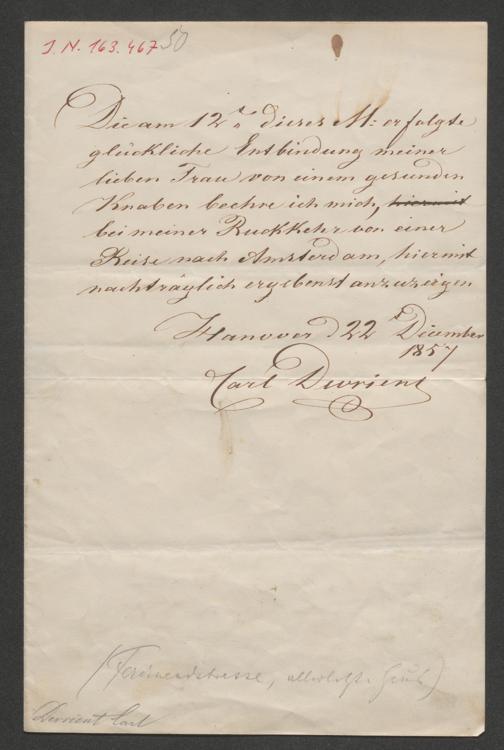 J. N. 163.467 50
Die am 12n dieses M: erfolgte
glückliche Entbindung meiner
lieben Frau von einem gesunden
Knaben beehre ich mich, hiermit
bei meiner Ruckkehr von einer
Reise nach Amsterdam, hiermit
nachträglich ergebenst anzuzeigen
Hanover d 22n December
1857
Carl Devrient
(Ferdinandstrasse,
Devrient Carl